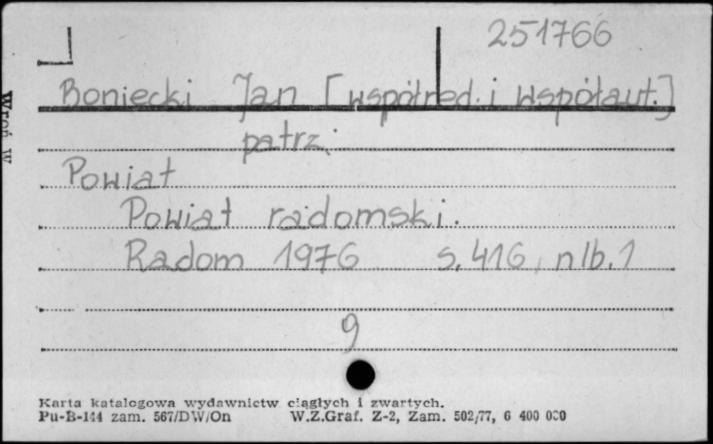 251766
Boniecki Jan [współred. i współaut.]
patrz:
Powiat
Powiat radomski.
Radom 1976 s. 416, nlb. 1
9
Karta katalogowa wydawnictw ciągłych i zwartych.
Pu-B-144 zam. 567/DW/On W.Z.Graf. Z-2, Zam. 502/77, 6 400 000